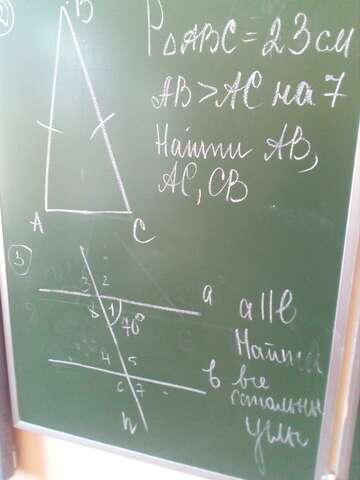 2
B
P△ABC = 23 см
AB > AC на 7
Найти AB,
AC, CB
A
C
3
3 2
8 1
70°
a
a || в
4 5
6 7
в
Найти
все
остальные
углы